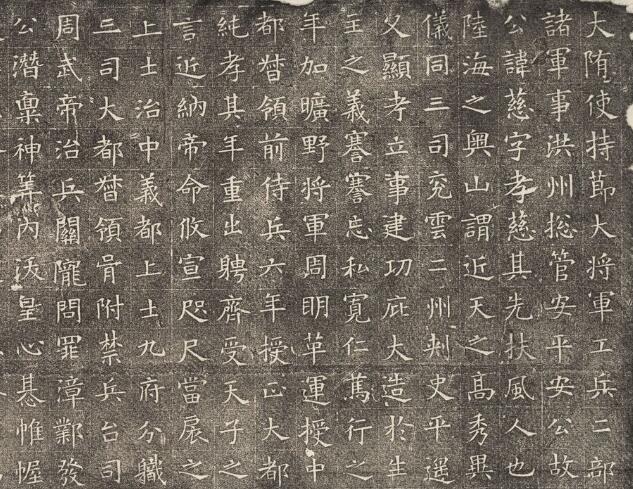 大隋使持節大將軍工兵二部
諸軍事洪州揔管安平安公故
公諱慈字孝慈其先扶風人也
陸海之奧山謂近天之高秀異
儀同三司兗雲二州刾史平遥
父顯孝立事建功庇大造於生
主之義謇謇忘私寬仁篤行之
年加曠野將軍周明革運授中
都督領前侍兵六年授正大都
純孝其年重出聘齊受天子之
言近納帝命攸宣咫尺當扆之
上士治中義都上士九府分職
三司大都督領胥附禁兵台司
周武帝治兵關隴問罪漳鄴發
公潛稟神筭内沃皇心惎帷幄